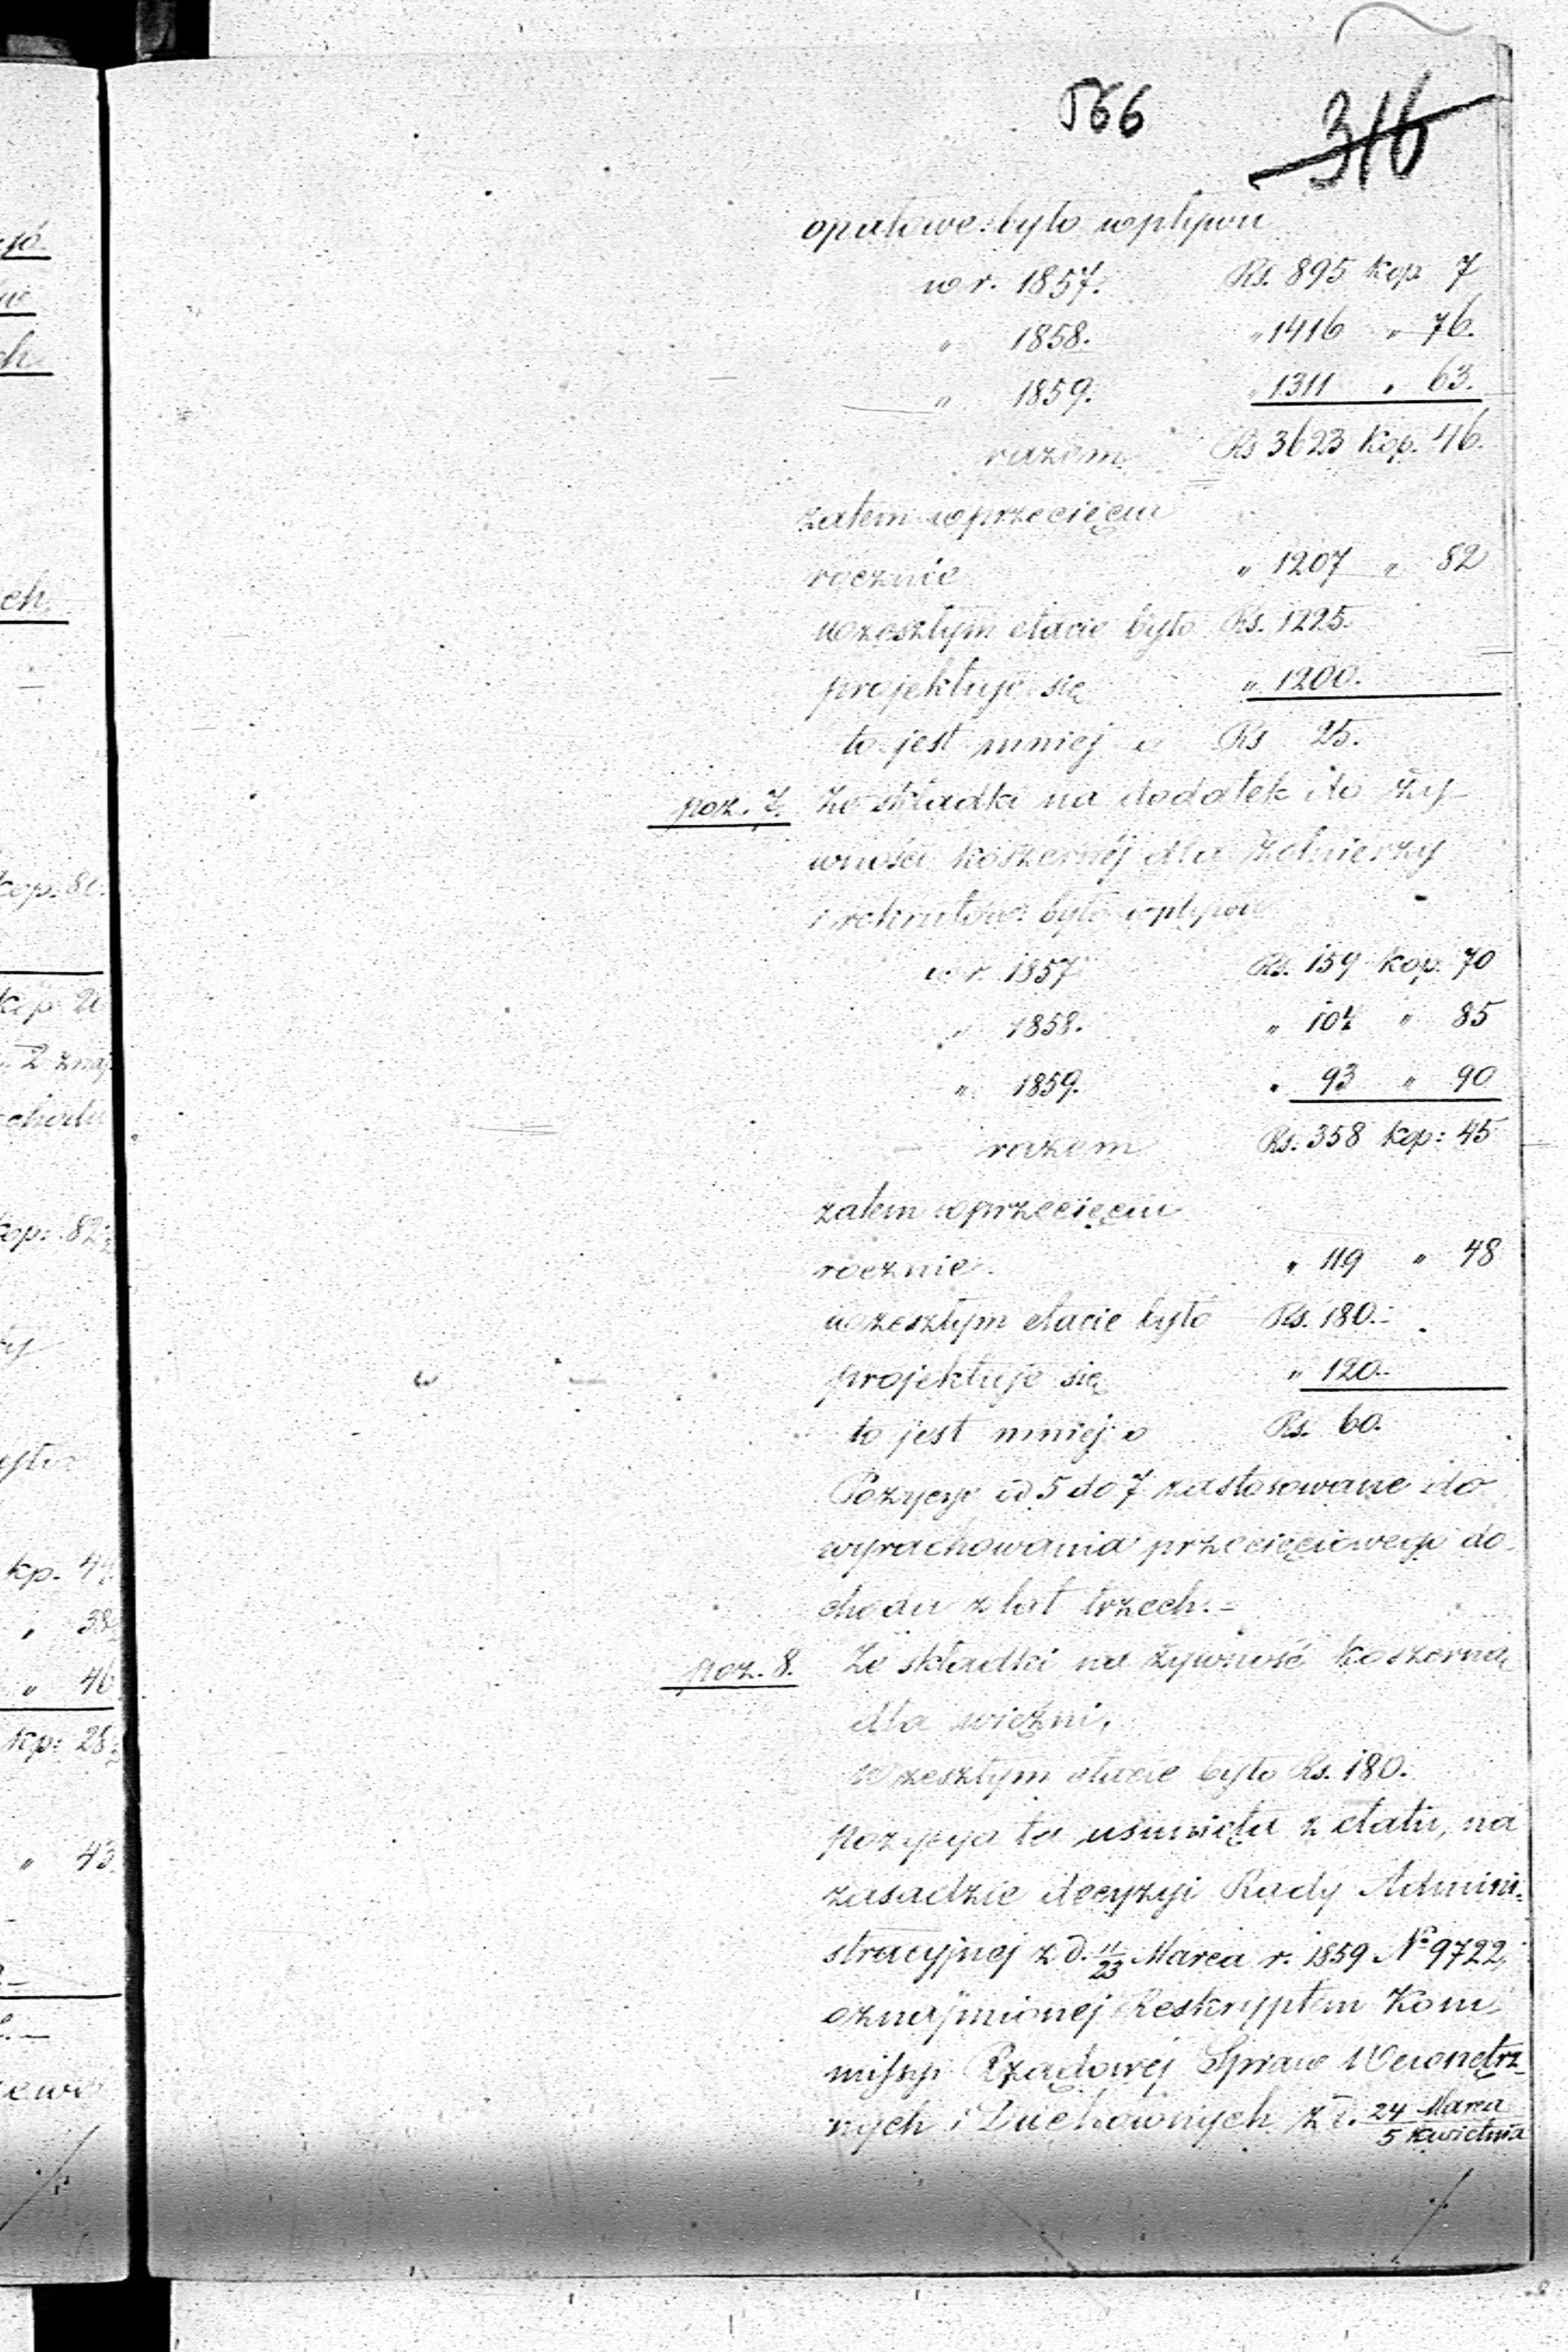 566 316
opałowe: było wpływu
w r. 1857. Rs. 895 kop 7
" 1858. " 1416 " 76.
" 1859. " 1311 " 63.
razem Rs 3623 kop. 46.
zatem w przecięciu
rocznie " 1207 " 82
w zeszłym etacie było Rs. 1225.
projektuje się " 1200.
to jest mniej o Rs 25.
poz. 7. Ze składki na dodatek do ży-
wności koszernéj dla żołnierzy
i rekrutów: było wpływu
w r. 1857 Rs. 159 kop: 70
" 1858. " 104 " 85
" 1859. " 93 " 90
razem Rs. 358 kop: 45
zatem w przecięciu
rocznie. " 119 " 48
w zeszłym etacie było Rs. 180.-
projektuje się " 120.-
to jest mniej o Rs. 60.
Pozycye od 5 do 7 zastosowane do
wyrachowania przecięciowego do-
chodu z lat trzech.-
poz. 8. Ze składki na żywność koszerną
dla więźni.
W zeszłym etacie było Rs. 180.
pozycya ta usunięta z etatu, na
zasadzie decyzyi Rady Admini-
stracyjnej z d. 11/23 Marca r. 1859 No 9722,
oznajmionej Reskryptem Kom-
missyi Rządowéj Spraw Wewnętrz-
nych i Duchownych z d. 24 Marca / 5 Kwietnia
./.
kop: 82
kp. 44
" 38
" 46
kp: 28
" 43
./.